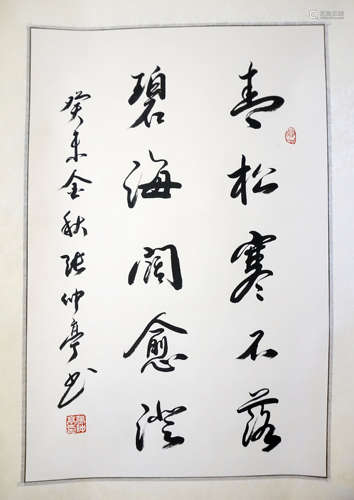 青松寒不落
碧海阔愈澄
癸未金秋张仲亭书